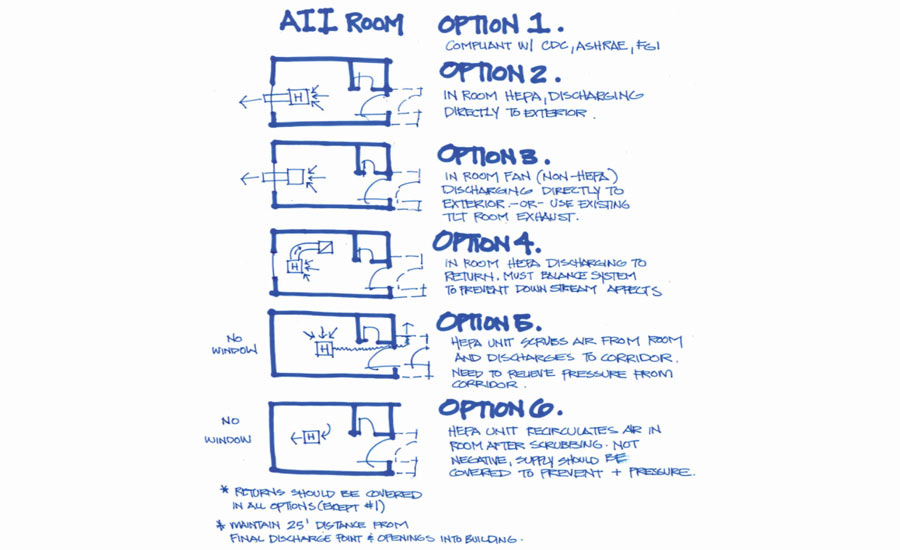 AII ROOM
OPTION 1.
COMPLIANT W/ CDC, ASHRAE, FGI
OPTION 2.
IN ROOM HEPA, DISCHARGING
DIRECTLY TO EXTERIOR.
H
OPTION 3.
IN ROOM FAN (NON-HEPA)
DISCHARGING DIRECTLY TO
EXTERIOR. -OR- USE EXISTING
TLT ROOM EXHAUST.
OPTION 4.
IN ROOM HEPA DISCHARGING TO
RETURN. MUST BALANCE SYSTEM
TO PREVENT DOWN STREAM AFFECTS
H
NO
WINDOW
H
OPTION 5.
HEPA UNIT SCRUBS AIR FROM ROOM
AND DISCHARGES TO CORRIDOR.
NEED TO RELIEVE PRESSURE FROM
CORRIDOR.
NO
WINDOW
H
OPTION 6.
HEPA UNIT RECIRCULATES AIR IN
ROOM AFTER SCRUBBING. NOT
NEGATIVE, SUPPLY SHOULD BE
COVERED TO PREVENT + PRESSURE.
* RETURNS SHOULD BE COVERED
IN ALL OPTIONS (EXCEPT #1)
* MAINTAIN 25' DISTANCE FROM
FINAL DISCHARGE POINT & OPENINGS INTO BUILDING.